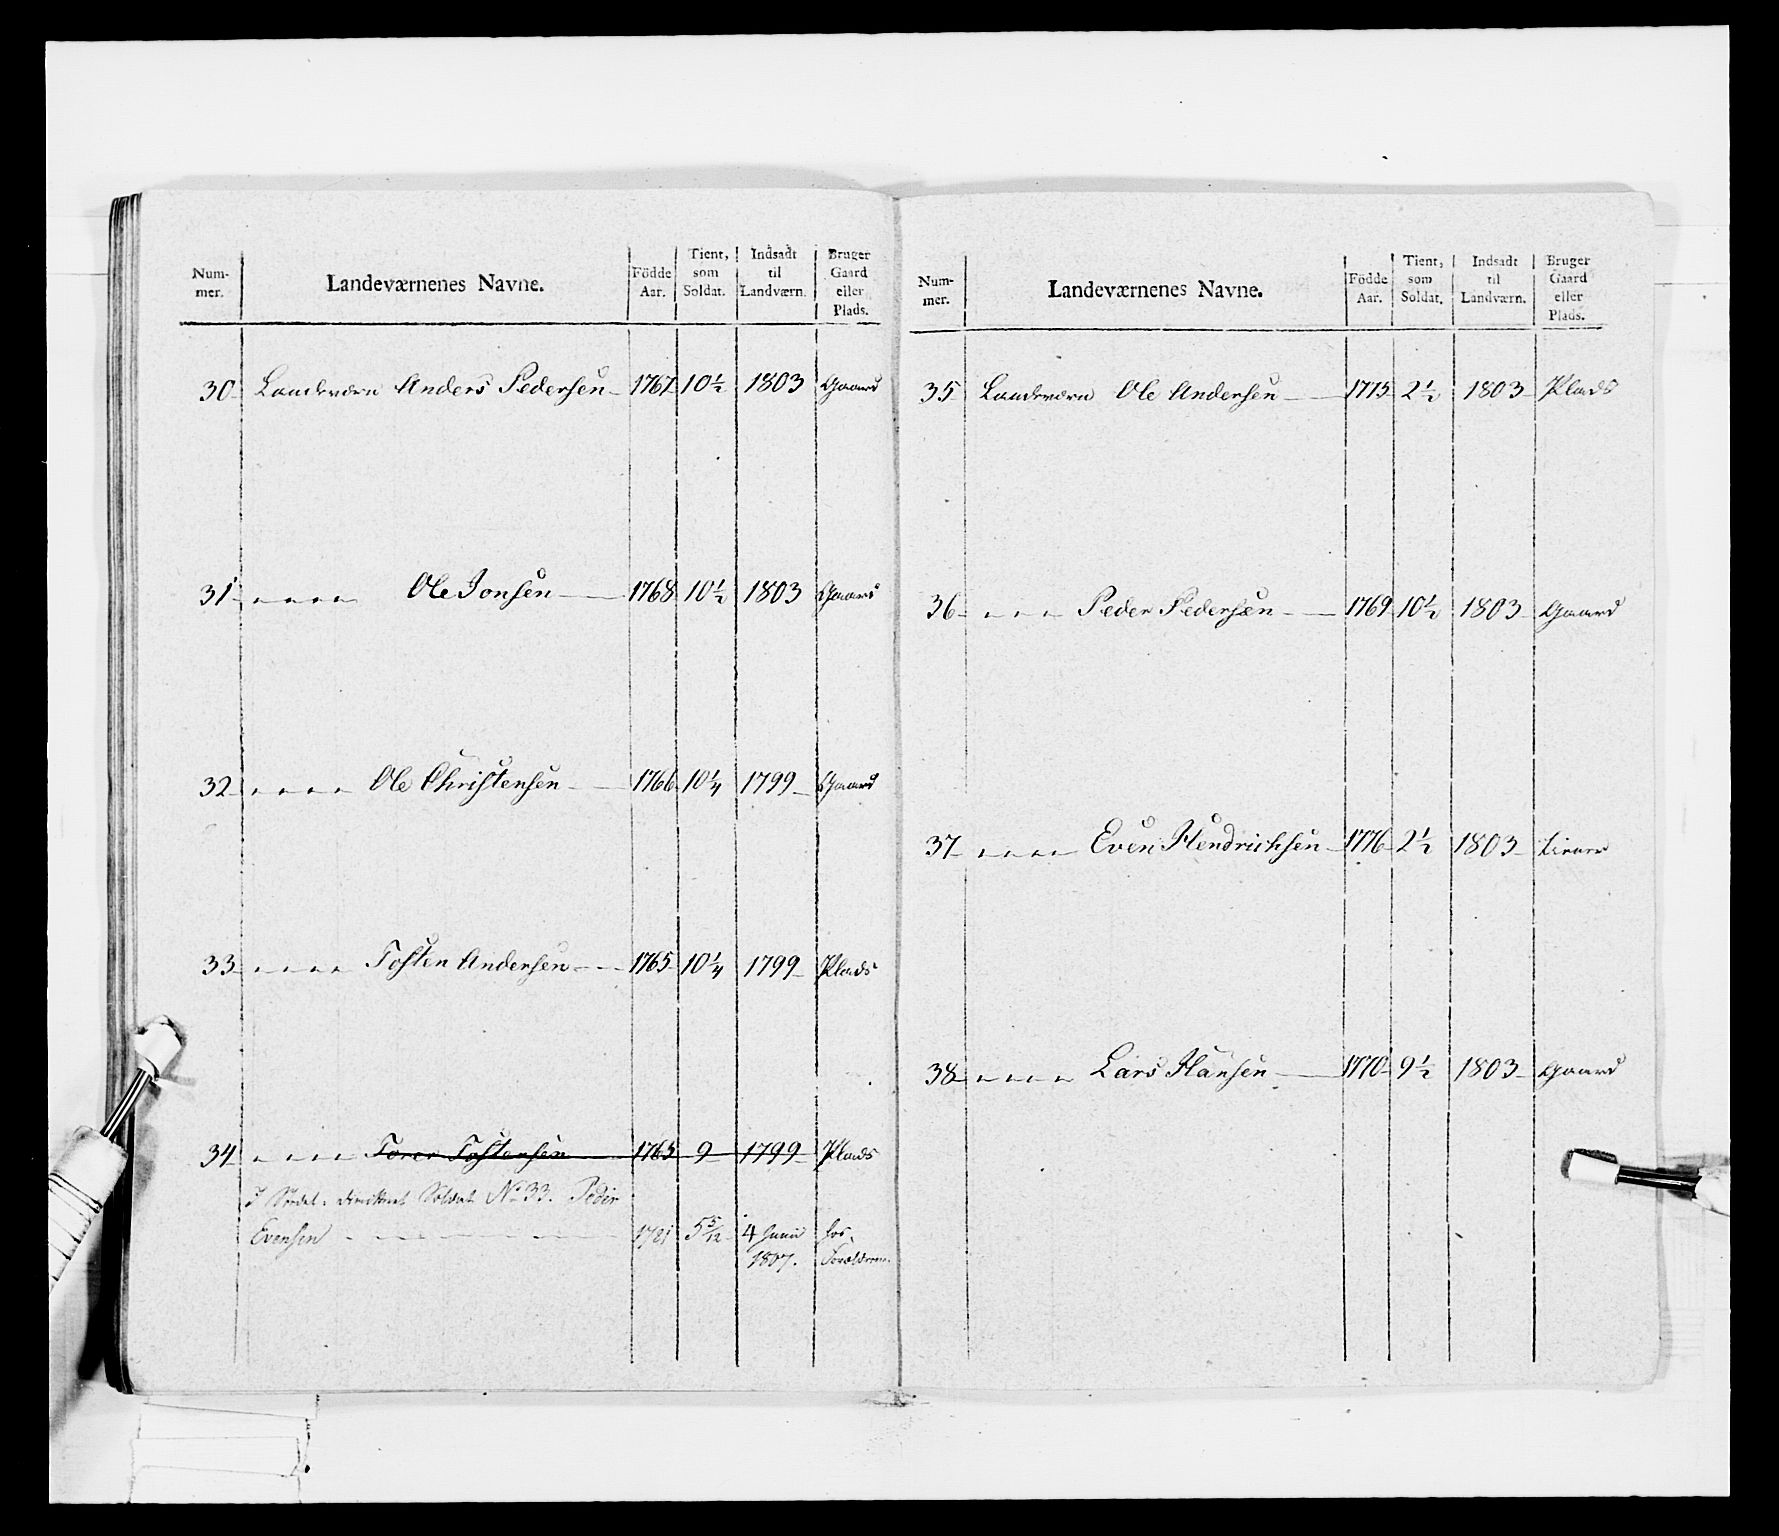 Num-
mer.
Landeværnenes Navne.
Födde
Aar.
Tient,
som
Soldat.
Indsadt
til
Landværn.
Bruger
Gaard
eller
Plads.
30 Landeværn Anders Pedersen 1767 10½ 1803 Gaard
31 „ „ „ „ Ole Jonsen 1768 10½ 1803 Gaard
32 „ „ „ „ Ole Christensen 1766 10¼ 1799 Gaard
33 „ „ „ „ Tosten Andersen 1765 10¼ 1799 Plads
34 „ „ „ „ Torer Tostensen 1765 9 1799 Plads
Soldat No 33. Peder
Evensen 1781 5 5/12 4 Junii hos
1807. Forældrene
Num-
mer.
Landeværnenes Navne.
Födde
Aar.
Tient,
som
Soldat.
Indsadt
til
Landværn.
Bruger
Gaard
eller
Plads.
35 Landeværn Ole Andersen 1775 2½ 1803 Plads
36 „ „ „ Peder Pedersen 1769 10½ 1803 Gaard
37 „ „ „ „ Even Hendrichsen 1776 2½ 1803 tiener
38 „ „ „ „ Lars Hansen 1770 9½ 1803 Gaard